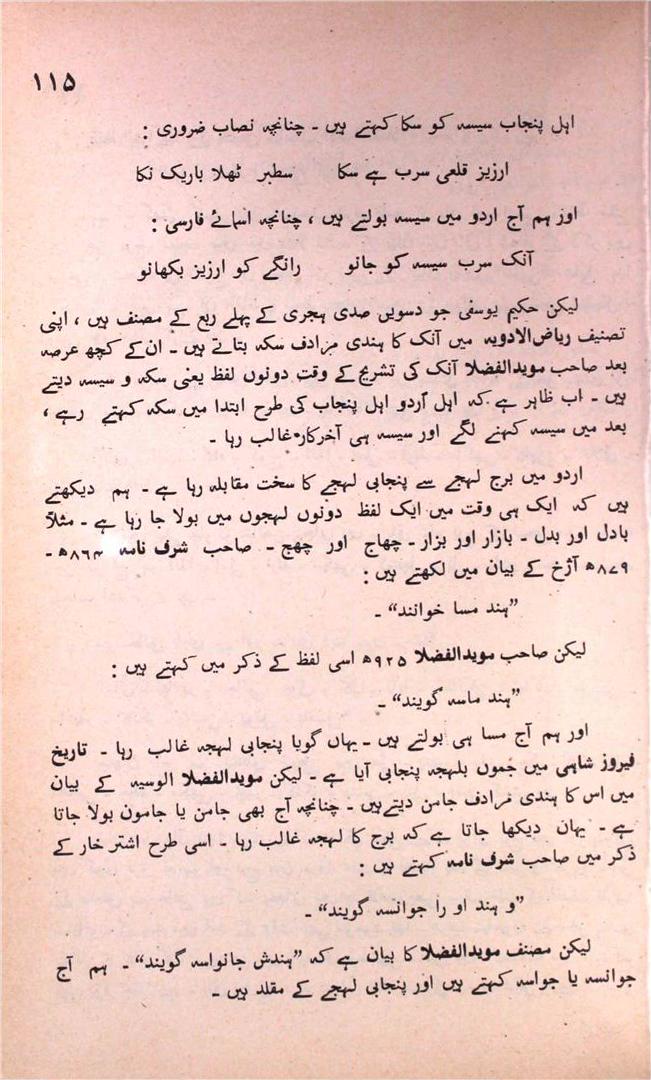 ۱۱۵
اہل پنجاب سیسہ کو سکا کہتے ہیں ۔ چنانچہ نصاب ضروری :
ارزیز قلعی سرب ہے سکا سطبر ٹھلا باریک نکا
اور ہم آج اردو میں سیسہ بولتے ہیں ، چنانچہ اسمائے فارسی :
آنک سرب سیسہ کو جانو رانگے کو ارزیز بکھانو
لیکن حکیم یوسفی جو دسویں صدی ہجری کے پہلے ربع کے مصنف ہیں ، اپنی
تصنیف ریاض‌الادویہ میں آنک کا ہندی مرادف سکہ بتاتے ہیں ۔ ان کے کچھ عرصہ
بعد صاحب موید‌الفضلا آنک کی تشریح کے وقت دونوں لفظ یعنی سکہ و سیسہ دیتے
ہیں ۔ اب ظاہر ہے کہ اہل اردو اہل پنجاب کی طرح ابتدا میں سکہ کہتے رہے ،
بعد میں سیسہ کہنے لگے اور سیسہ ہی آخرکار غالب رہا ۔
اردو میں برج لہجے سے پنجابی لہجے کا سخت مقابلہ رہا ہے ۔ ہم دیکھتے
ہیں کہ ایک ہی وقت میں ایک لفظ دونوں لہجوں میں بولا جا رہا ہے ۔ مثلاً
بادل اور بدل ۔ بازار اور بزار ۔ چھاج اور چھج ۔ صاحب شرف نامہ ۸۶۴ھ ۔
۸۷۹ھ آژخ کے بیان میں لکھتے ہیں :
”ہند مسا خوانند“ ۔
لیکن صاحب موید‌الفضلا ۹۲۵ھ اسی لفظ کے ذکر میں کہتے ہیں :
”ہند ماسہ گویند“ ۔
اور ہم آج مسا ہی بولتے ہیں ۔ یہاں گویا پنجابی لہجہ غالب رہا ۔ تاریخ
فیروز شاہی میں جموں بلہجہ پنجابی آیا ہے ۔ لیکن موید‌الفضلا الوسیہ کے بیان
میں اس کا ہندی مرادف جامن دیتے ہیں ۔ چنانچہ آج بھی جامن یا جامون بولا جاتا
ہے ۔ یہان دیکھا جاتا ہے کہ برج کا لہجہ غالب رہا ۔ اسی طرح اشتر خار کے
ذکر میں صاحب شرف نامہ کہتے ہیں :
”و ہند او را جوانسہ گویند“ ۔
لیکن مصنف موید‌الفضلا کا بیان ہے کہ ”ہندش جانواسہ گویند“ ۔ ہم آج
جوانسہ یا جواسہ کہتے ہیں اور پنجابی لہجے کے مقلد ہیں ۔